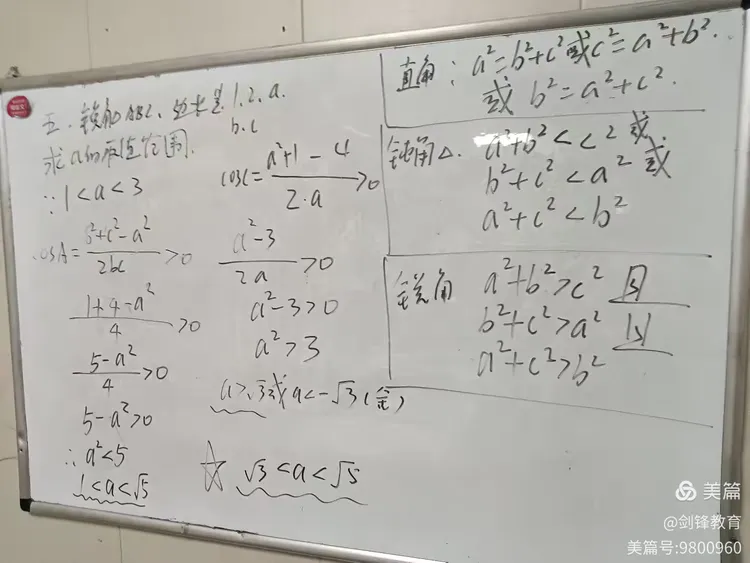 五. 锐角△ABC, 边长是 1. 2. a.
b. c
求a的取值范围.
∵ 1<a<3
cosA = (b²+c²-a²)/(2bc) > 0
(1+4-a²)/4 > 0
(5-a²)/4 > 0
5-a²>0
∴ a²<5
1<a<√5
cosC = (a²+1-4)/(2·a) > 0
(a²-3)/(2a) > 0
a²-3>0
a²>3
a>√3或a<-√3(舍)
☆ √3<a<√5
直角: a²=b²+c² 或c²=a²+b².
或 b²=a²+c².
钝角△. a²+b²<c² 或
b²+c²<a² 或
a²+c²<b²
锐角 a²+b²>c² 且
b²+c²>a² 且
a²+c²>b²
美篇
@剑锋教育
美篇号:9800960